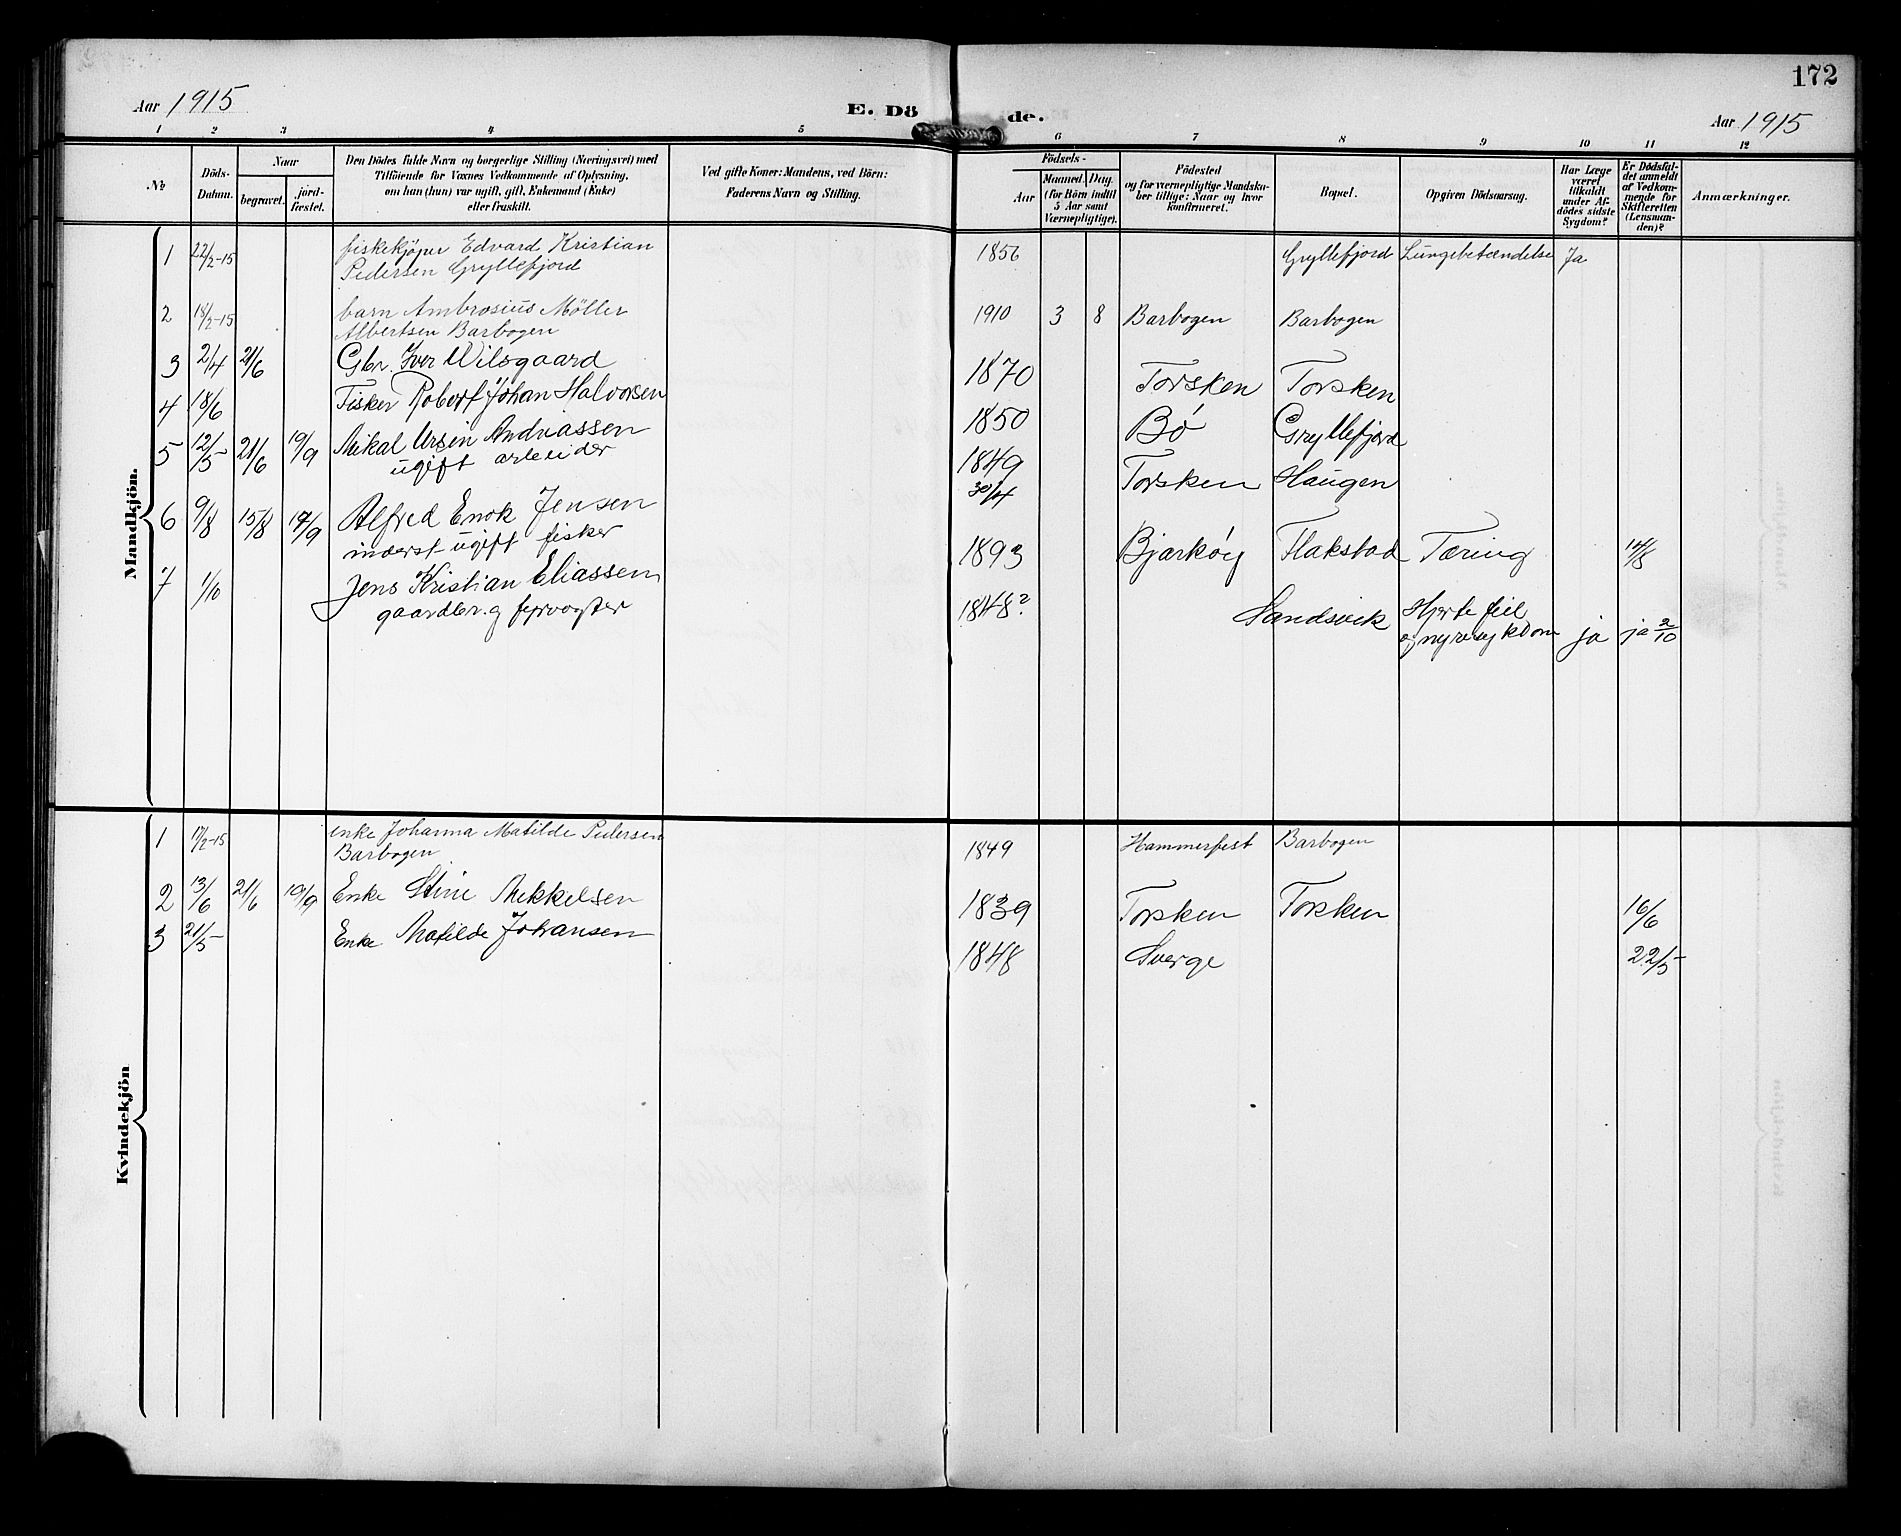 172
Aar 1915
E. Döde.
Aar 1915
1 2 3 4 5 6 7 8 9 10 11 12
No
Döds-Datum.
Naar
begravet.
jord-fæstet.
Den Dödes fulde Navn og borgerlige Stilling (Næringsvei) med
Tilföiende for Voxnes Vedkommende af Oplysning,
om han (hun) var ugift, gift, Enkemand (Enke)
eller fraskilt.
Ved gifte Koner: Mandens, ved Börn:
Faderens Navn og Stilling.
Födsels-
Aar
Maaned. Dag.
(for Börn indtil
5 Aar samt
Værnepligtige).
Födested
og for værnepligtige Mandska-
ber tillige: Naar og hvor
konfirmeret.
Bopæl.
Opgiven Dödsaarsag.
Har Læge
været
tilkaldt
under Af-
dödes sidste
Sygdom?
Er Dödsfal-
det anmeldt
af Vedkom-
mende for
Skifteretten
(Lensman-
den)?
Anmærkninger.
Mandkjön.
1 22/2-15 fiskekjöper Edvard Kristian 1856 Gryllefjord Lungebetændelse Ja
Pedersen Gryllefjord
2 18/2-15 barn Ambrosius Möller 1910 3 8 Barbogen Barbogen
Albertsen Barbogen
3 2/4 21/6 Gbr. Iver Wilsgaard 1870 Torsken Torsken
4 18/6 Fisker Robert Johan Halvorsen 1850 Bø Gryllefjord
5 12/5 21/6 19/9 Mikal Ursen Andreassen 1849 Torsken Haugen
ugift arbeider 30/4
6 9/8 15/8 17/9 Alfred Enok Jensen 1893 Bjarköy Flakstad Tæring 14/8
inderst ugift fisker
7 1/10 Jens Kristian Eliassen 1848? Sandsvik Hjerte feil
gaardbr. og fyrvogter og nyresykdom ja ja 2/10
Kvindekjön
1 17/2-15 enke Johanna Matilde Pedersen 1849 Hammerfest Barbogen
Barbogen
2 13/6 21/6 19/9 Enke Stine Mekkelsen 1839 Torsken Torsken 16/6
3 21/5 Enke Matilde Johansen 1848 Sverge 22/5